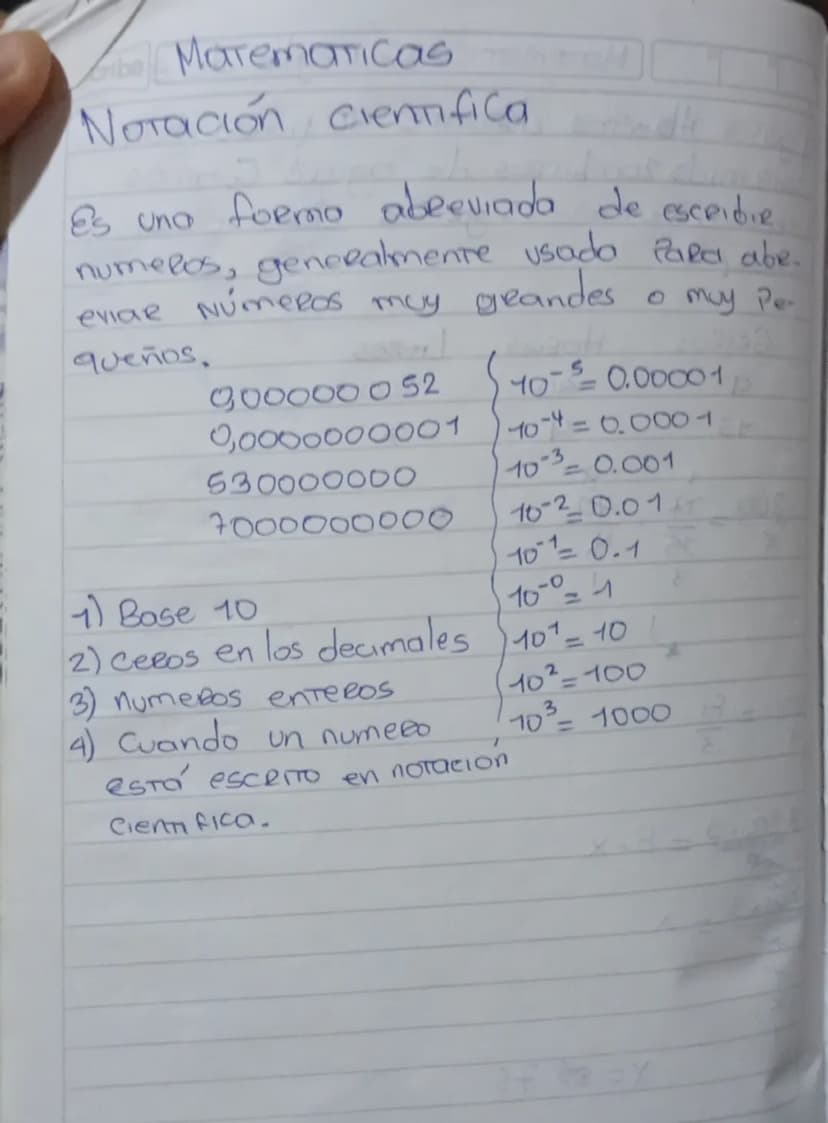 Matematicas
Notación cientifica
Es una forma abreviada de escribir
numeros, generalmente usado para abre-
viar Números muy grandes o muy pe-
queños.
0,00000052
0,0000000001
530000000
7000000000
10⁻⁵= 0.00001
10⁻⁴= 0.0001
10⁻³= 0.001
10⁻²= 0.01
10⁻¹= 0.1
10⁻⁰= 1
10¹= 10
10²=100
10³= 1000
1) Base 10
2) ceros en los decimales
3) numeros enteros
4) Cuando un numero
está escrito en notación
cientifica.